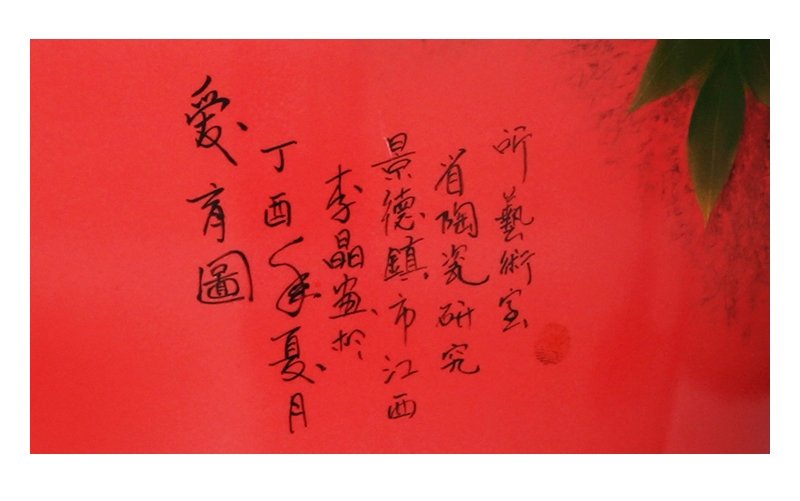 愛育圖
丁酉年夏月
李晶畫於
景德鎮市江西
省陶瓷研究
所藝術室